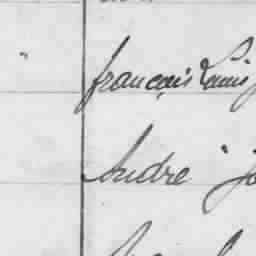 françois Louis
André " J